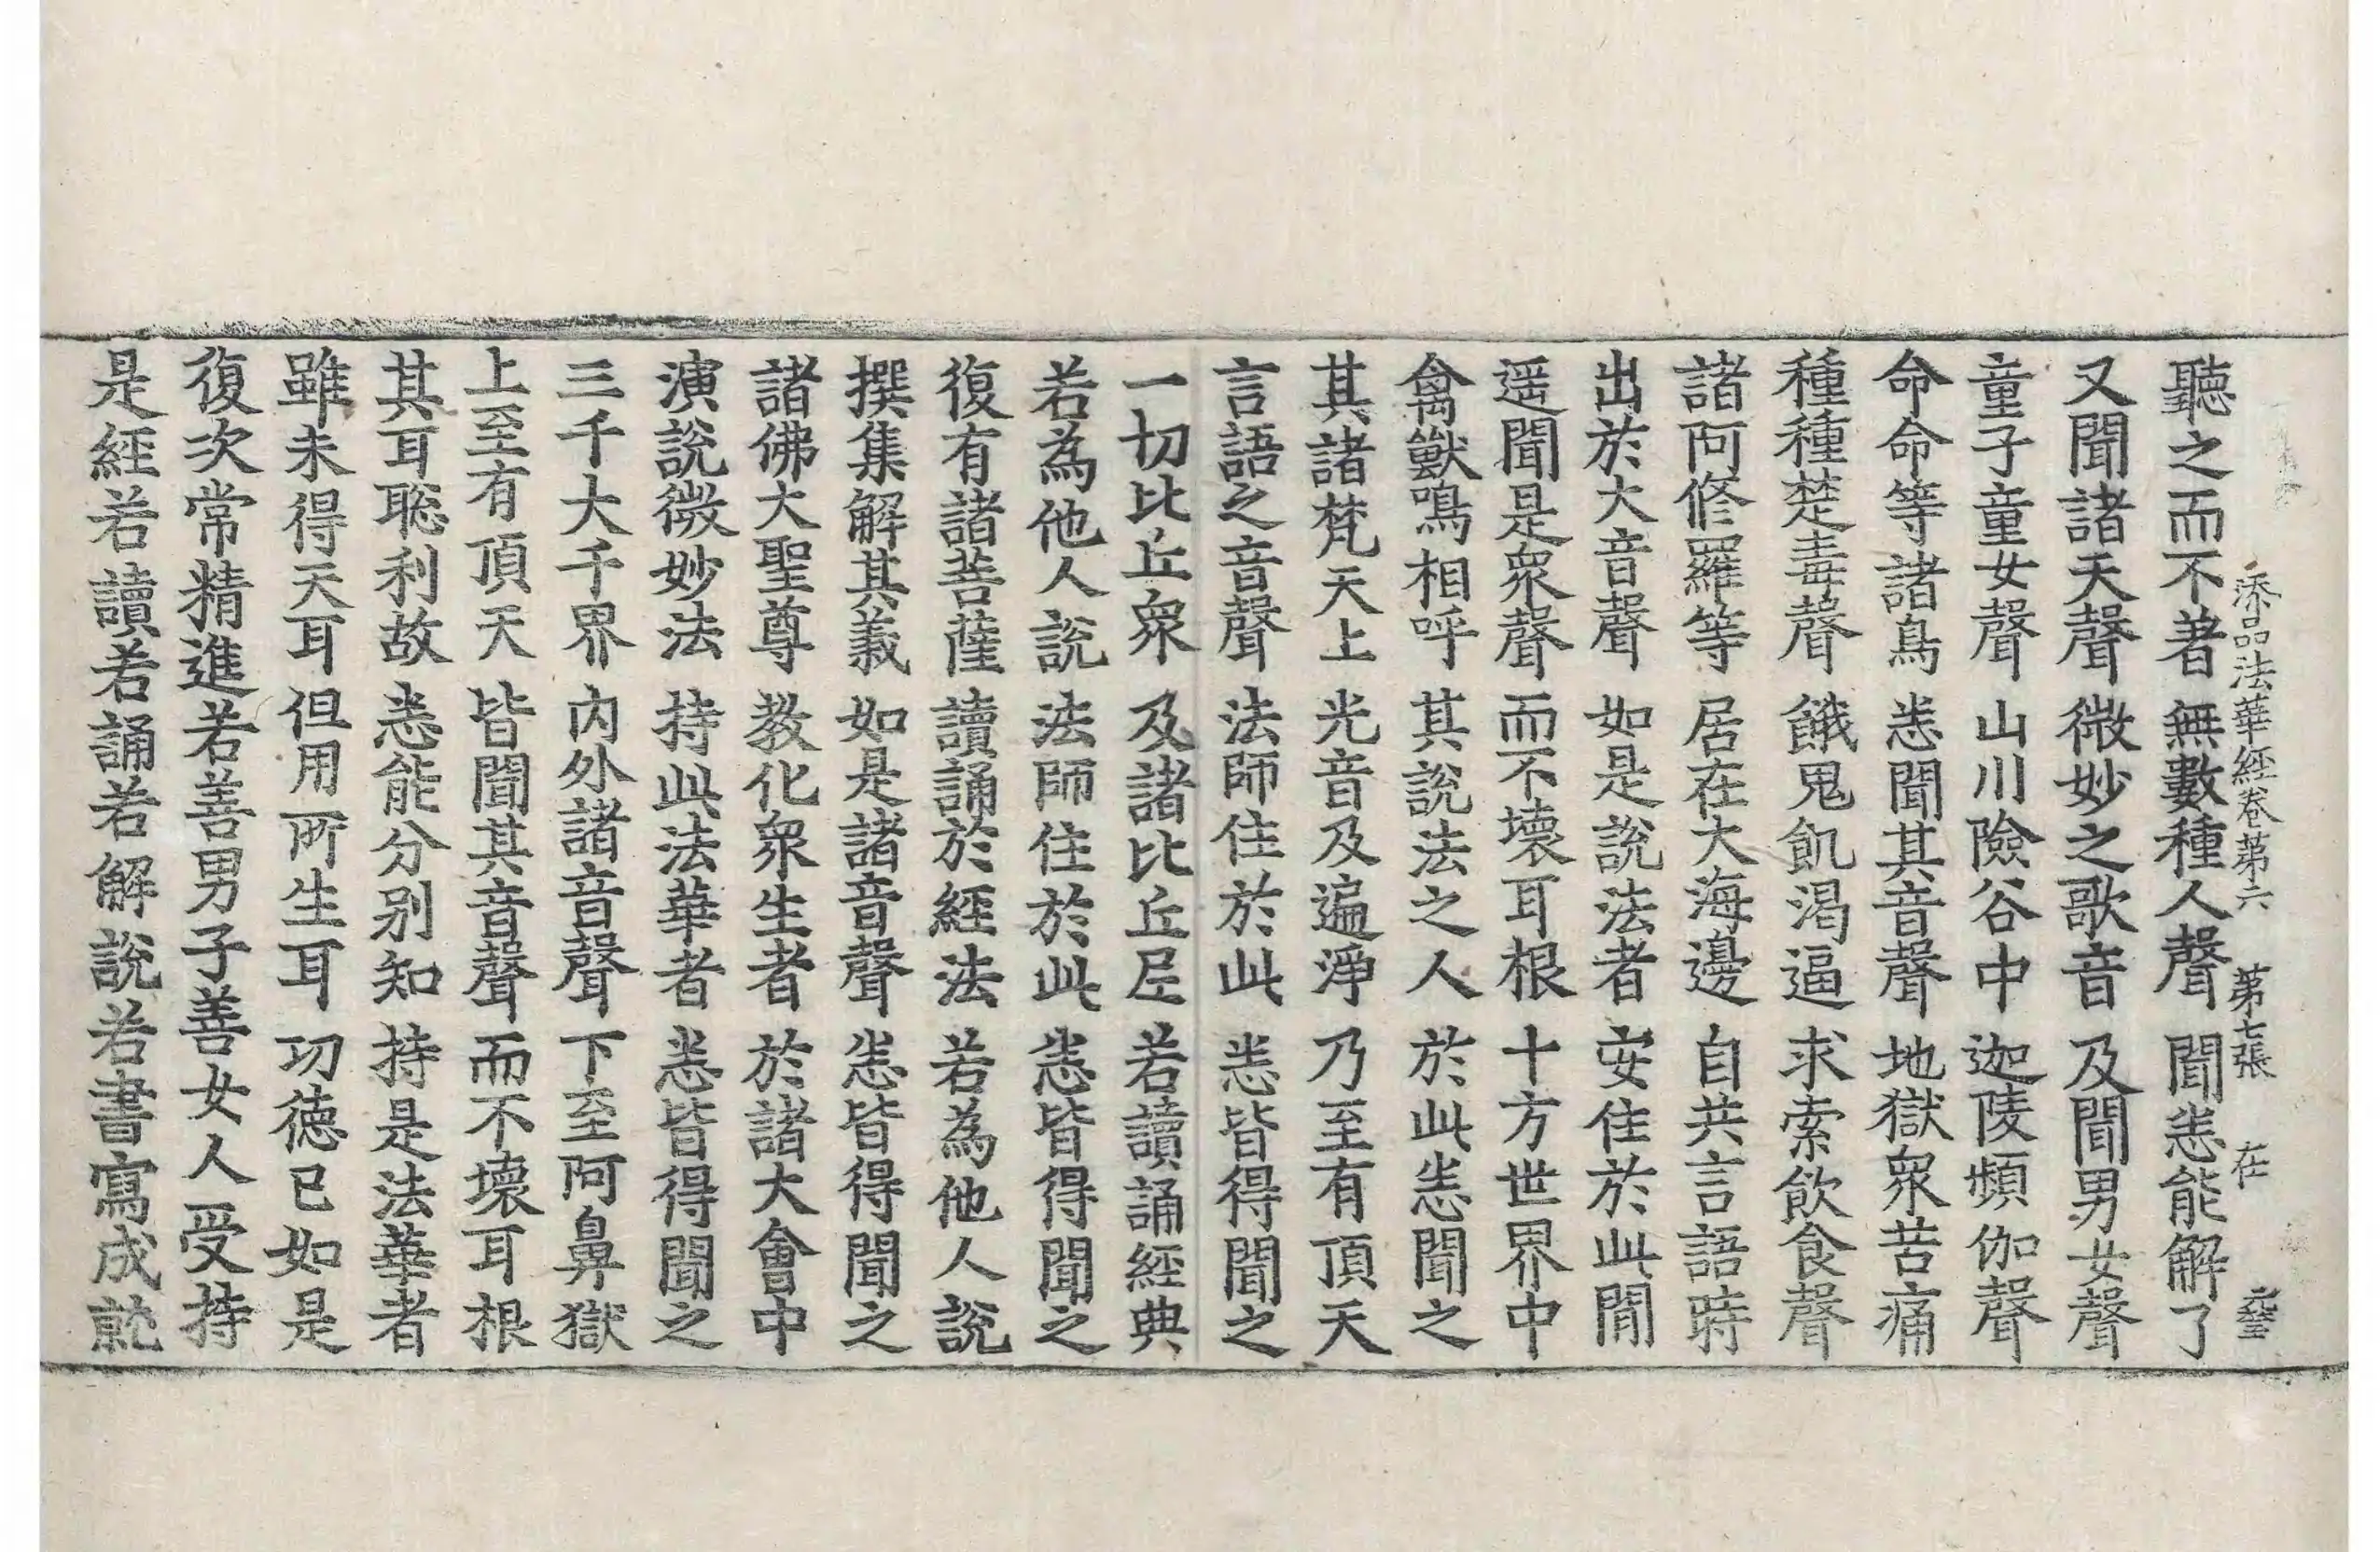 添品法華經卷第六 第七張 在
聽之而不著 無數種人聲 聞悉能解了
又聞諸天聲 微妙之歌音 及聞男女聲
童子童女聲 山川險谷中 迦陵頻伽聲
命命等諸鳥 悉聞其音聲 地獄衆苦痛
種種楚毒聲 餓鬼飢渴逼 求索飲食聲
諸阿修羅等 居在大海邊 自共言語時
出於大音聲 如是說法者 安住於此間
遥聞是衆聲 而不壞耳根 十方世界中
禽獸鳴相呼 其說法之人 於此悉聞之
其諸梵天上 光音及遍淨 乃至有頂天
言語之音聲 法師住於此 悉皆得聞之
一切比丘衆 及諸比丘尼 若讀誦經典
若為他人說 法師住於此 悉皆得聞之
復有諸菩薩 讀誦於經法 若為他人說
撰集解其義 如是諸音聲 悉皆得聞之
諸佛大聖尊 教化衆生者 於諸大會中
演說微妙法 持此法華者 悉皆得聞之
三千大千界 内外諸音聲 下至阿鼻獄
上至有頂天 皆聞其音聲 而不壞耳根
其耳聡利故 悉能分别知 持是法華者
雖未得天耳 但用所生耳 功德已如是
復次常精進若善男子善女人受持
是經若讀若誦若解說若書寫成就